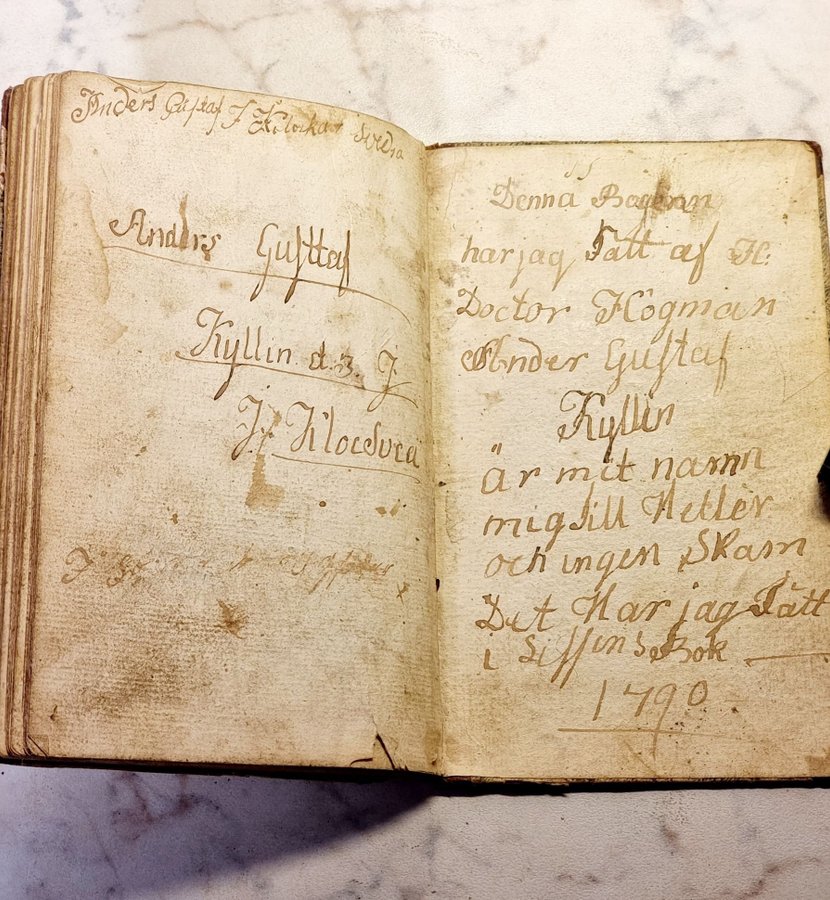 Anders Gustaf J Klockar Svedia
Anders Gusttaf
Kyllin d. 3. J
J. Klocsvea
Denna Bog
har jag Fått af H:
Doctor Högman
Ander Gustaf
Kyllin
är mit namn
mig till Heller
och ingen Skam
Det Har jag Fått
i Lifsens Bok
1790